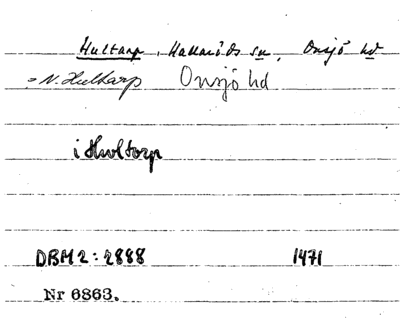 Hultarp, Hallaröds sn, Onsjö hd
= N. Hultarp Onsjö hd
i Hwltorp
DBM 2: 2888 1471
Nr 6863.